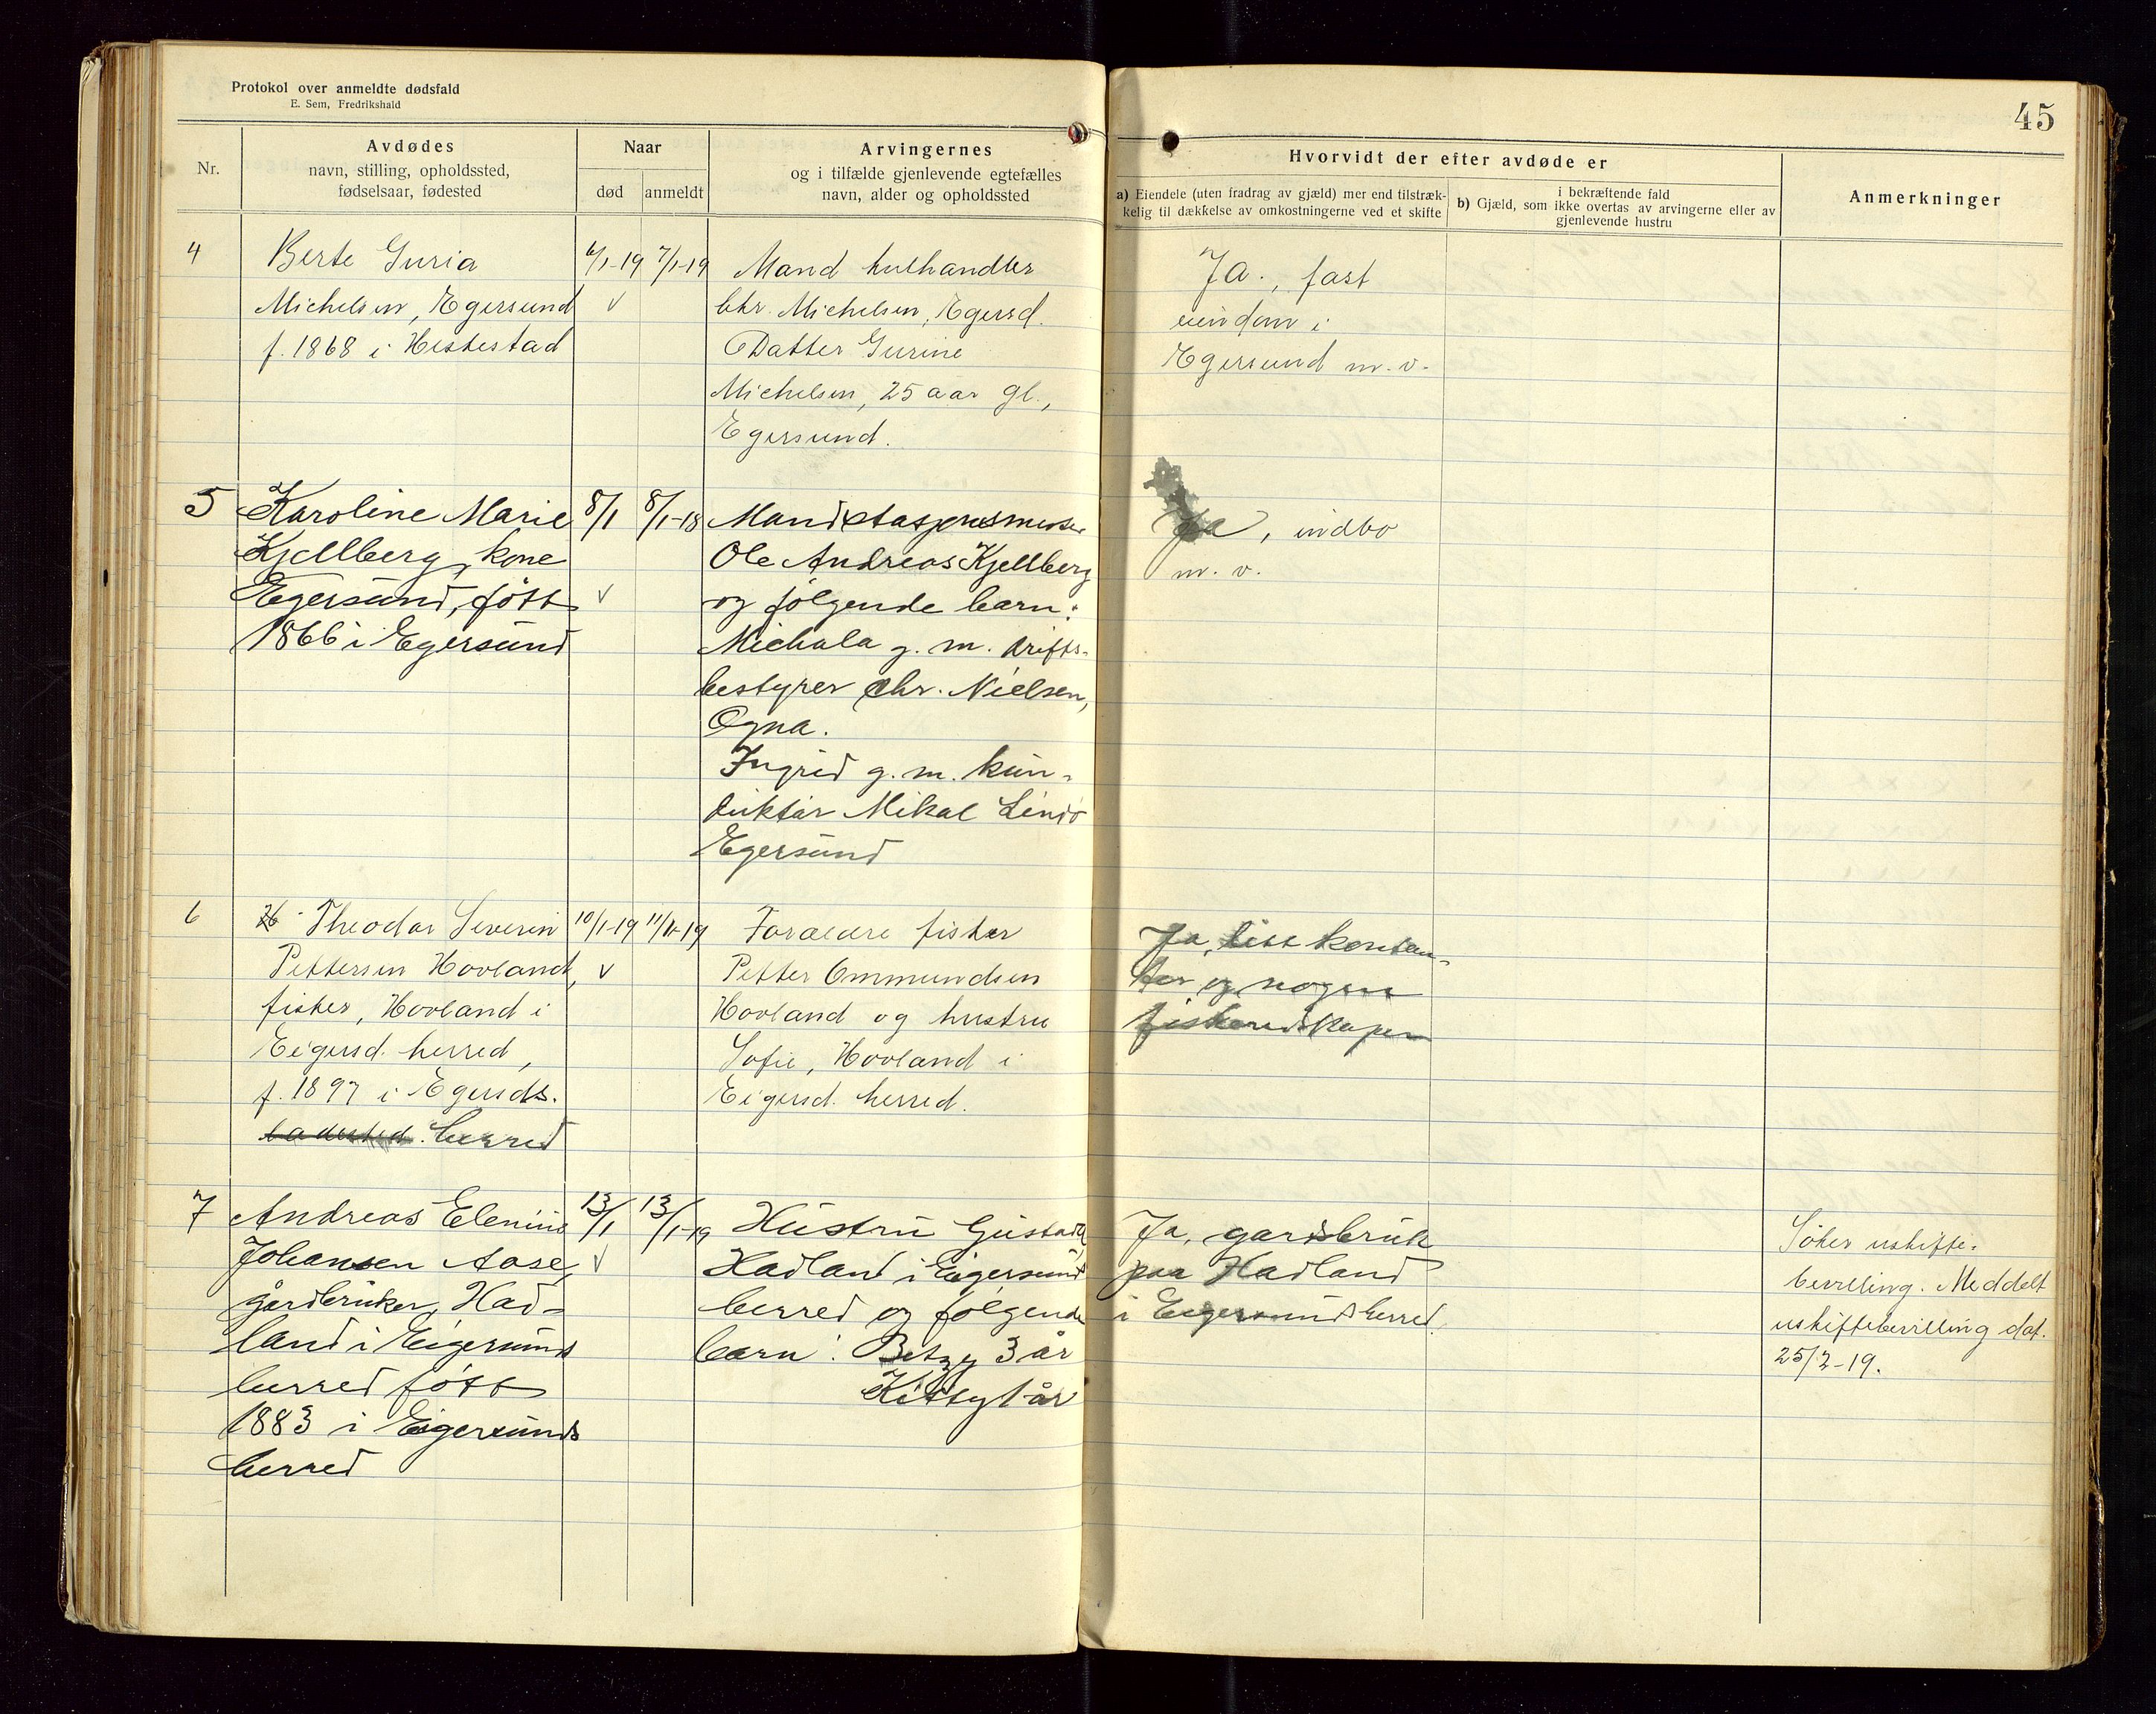 Protokol over anmeldte dødsfald
E. Sem, Fredrikshald
45
Nr.
Avdødes
navn, stilling, opholdssted,
fødselsaar, fødested
Naar
død
anmeldt
Arvingernes
og i tilfælde gjenlevende egtefælles
navn, alder og opholdssted
Hvorvidt der efter avdøde er
a) Eiendele (uten fradrag av gjæld) mer end tilstræk-
kelig til dækkelse av omkostningerne ved et skifte
i bekræftende fald
b) Gjæld, som ikke overtas av arvingerne eller av
gjenlevende hustru
Anmerkninger
4
Berte Guria
Michelsen, Egersund
f. 1868 i Heskestad
6/1-19 7/1-19
v
Mand hulhandler
Chr. Michelsen, Egersd.
Datter Gurine
Michelsen, 25 aar gl.,
Egersund.
Ja., fast
eiendom i
Egersund m.v.
5
Karoline Marie
Kjellberg, kone
Egersund, fött
1866 i Egersund
8/1 8/1-18
v
Mand stasjonsmester
Ole Andreas Kjellberg
og følgende barn:
Michala g. m. drifts-
bestyrer Chr. Nielsen,
Ogna.
Ingrid g. m. kun-
duktør Mikal Lindø
Egersund
Ja, indbo
m. v.
6
Theodor Severin
Pettersen Hovland,
fisker, Hovland i
Eigersd. herred,
f. 1897 i Egersds.
ladested. herred
10/1-19 11/1-19
v
Forældre fisker
Petter Ommundsen
Hovland og hustru
Sofie, Hovland i
Eigersd. herred.
Ja, litt kontan-
ter og nogen
fiskeredskaper
7
Andreas Elenius
Johansen Aase,
gårdbruker, Had-
land i Eigersunds
herred fött
1883 i Eigersunds
herred
13/1 13/1-19
v
Hustru Gustava
Hadland i Eigersund
herred og følgende
barn: Betzy 3 år
Kitty 1 år
Ja, gardsbruk
paa Hadland
i Eigersunds herred.
Söker uskifte-
bevilling. Meddelt
uskiftebevilling dat.
25/2-19.